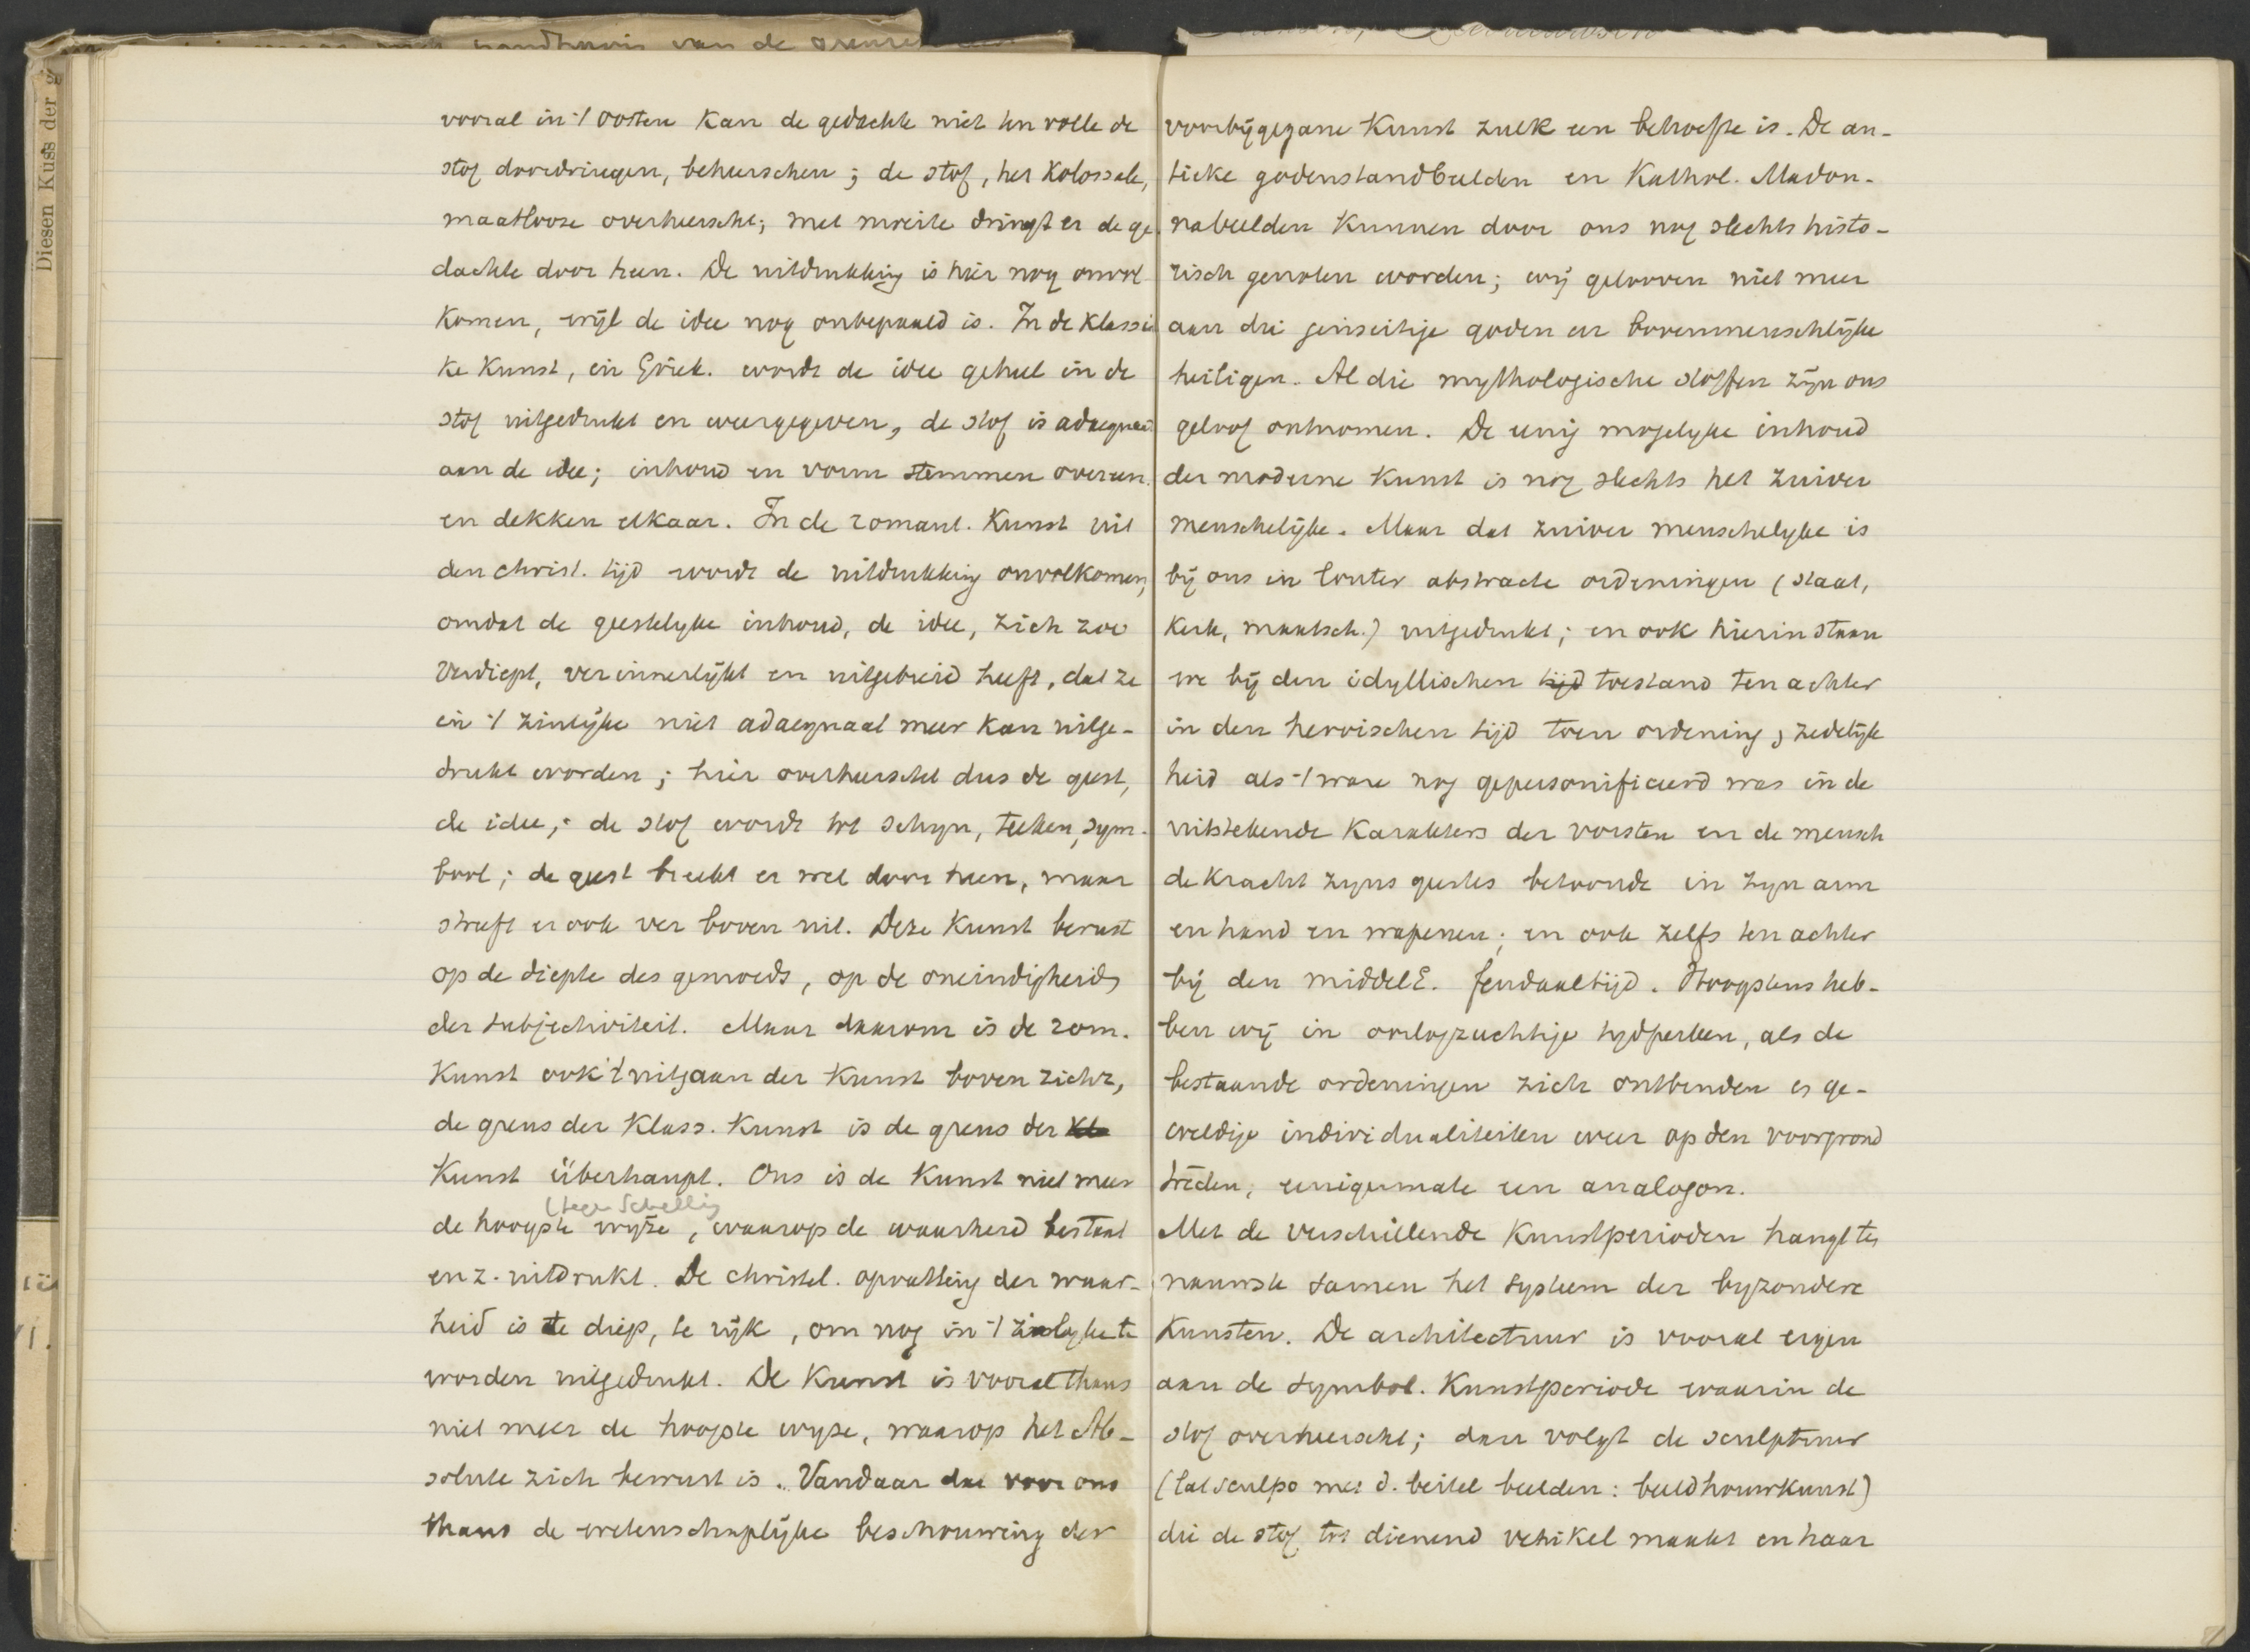 handhavin van de grense
Diesen Kuss der g
vooral in 't oosten kan de gedachte niet ten volle de
stof doordringen, beheerschen; de stof, het kolossale,
maatlooze overheerscht; met moeite dringt er de ge
dachte door heen. De uitdrukking is hier nog onvol
komen, wijl de idee nog onbepaald is. In de klassie
ke kunst, in Griek. wordt de idee geheel in de
stof uitgedrukt en weergegeven, de stof is adaequaat
aan de idee; inhoud en vorm stemmen overeen
en dekken elkaar. In de romant. kunst uit
den christ. tijd wordt de uitdrukking onvolkomen,
omdat de geestelyke inhoud, de idee, zich zoo
verdiept, verinnerlijkt en uitgebreid heeft, dat ze
in 't zinlijke niet adaequaat meer kan uitge-
drukt worden; hier overheerscht dus de geest,
de idee; de stof wordt tot schyn, teeken, sym-
bool; de geest breekt er wel door heen, maar
streeft er ook ver boven uit. Deze kunst berust
op de diepte des gemoeds, op de oneindigheid
der subjectiviteit. Maar daarom is de rom.
kunst ook 't uitgaan der kunst boven zichz,
de grens der klass. kunst is de grens der kla
kunst überhaupt. Ons is de kunst niet meer
(tegen Schelling
de hoogste wyze, waarop de waarheid bestaat
en z. uitdrukt. De christel. opvatting der waar-
heid is te diep, te rijk, om nog in 't zinlyke te
worden uitgedrukt. De kunst is vooral thans
niet meer de hoogste wyze, waarop het Ab-
solute zich bewust is. Vandaar dat voor ons
thans de wetenschaplijke beschouwing der
voorbijgegane kunst zulk een behoefte is. De an-
tieke godenstandbeelden en Kathol. Madon-
nabeelden kunnen door ons nog slechts histo-
risch genoten worden; wij gelooven niet meer
aan die jenseitige goden en bovenmenschlijke
heiligen. Al die mythologische stoffen zijn ons
geloof ontnomen. De eenig mogelyke inhoud
der moderne kunst is nog slechts het zuiver
menschelijke. Maar dat zuiver menschelyke is
bij ons in louter abstracte ordeningen (staat,
kerk, maatsch.) uitgedrukt; en ook hierin staan
we bij den idyllischen tijd toestand ten achter
in den heroischen tijd toen ordening, zedelijk
heid als 't ware nog gepersonifieerd was in de
uitstekende karakters der vorsten en de mensch
de kracht zyns geestes betoonde in zyn arm
en hand en wapenen; en ook zelfs ten achter
bij den middelE. feudaaltijd. Hoogstens heb-
ben wij in oorlogzuchtige tydperken, als de
bestaande ordeningen zich ontbinden er ge-
weldige individualiteiten weer op den voorgrond
treden, eenigermate een analogon.
Met de verschillende kunstperioden hangt ten
nauwste samen het systeem der byzondere
kunsten. De architectuur is vooral eigen
aan de symbol. kunstperiode waarin de
stof overheerscht; dan volgt de sculptuur
(lat sculpo met d. beitel beelden: beeldhouwkunst)
die de stof tot dienend vehikel maakt en haar